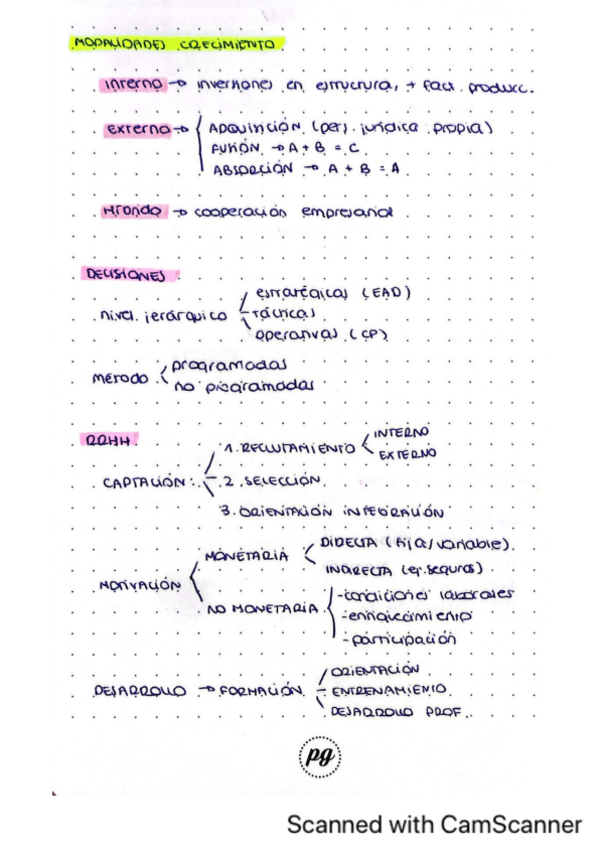 MODALIDADES CRECIMIENTO
Interno → inversiones en estructura, + fact. producc.
Externo → ADQUISICIÓN (pers. jurídica propia)
FUSIÓN → A + B = C
ABSORCIÓN → A + B = A
Híbrido → cooperación empresarial
DECISIONES
nivel jerárquico
estratégicas (EAD)
tácticas
operativas (CP)
método
programadas
no programadas
RRHH
CAPTACIÓN:
1. RECLUTAMIENTO
INTERNO
EXTERNO
2. SELECCIÓN
3. ORIENTACIÓN INTEGRACIÓN
MOTIVACIÓN
MONETARIA
DIRECTA (fija/variable).
INDIRECTA (ej. seguros).
NO MONETARIA
-condiciones laborales
-enriquecimiento
-participación
DESARROLLO → FORMACIÓN
ORIENTACIÓN
ENTRENAMIENTO
DESARROLLO PROF.
pg
Scanned with CamScanner